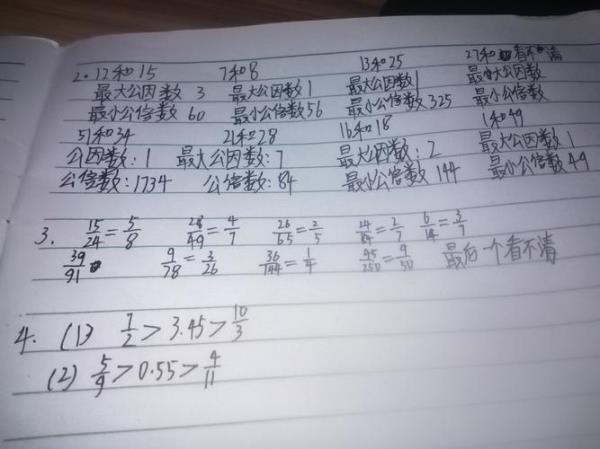 2. 12和15 7和8 13和25 27和 看不清
最大公因数 3 最大公因数 1 最大公因数 1 最大公因数
最小公倍数 60 最小公倍数 56 最小公倍数 325 最小公倍数
51和34 21和28 16和18 1和49
公因数: 1 最大公因数: 7 最大公因数: 2 最大公因数 1
公倍数: 1734 公倍数: 84 最小公倍数 144 最小公倍数 49
3. 15/24=5/8 28/49=4/7 26/65=2/5 24/84=2/7 6/14=3/7
39/91 9/78=3/26 36/144=1/4 45/250=9/50 最后一个看不清
4. (1) 7/2>3.45>10/3
(2) 5/9>0.55>4/11